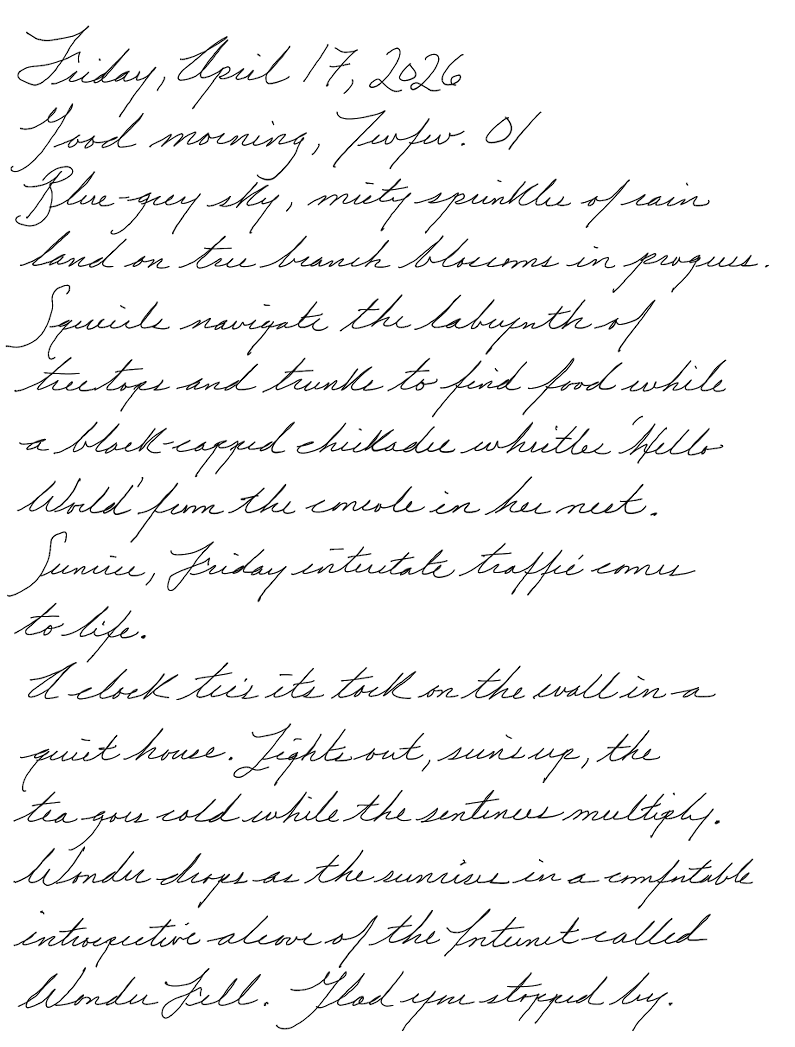 Friday, April 17, 2026
Good morning, Twfw. 01
Blue-grey sky, misty sprinkles of rain
land on tree branch blossoms in progress.
Squirrels navigate the labyrinth of
treetops and trunks to find food while
a black-capped chickadee whistles 'Hello
World' from the console in her nest.
Sunrise, Friday interstate traffic comes
to life.
A clock tics its tock on the wall in a
quiet house. Lights out, sun's up, the
tea goes cold while the sentences multiply.
Wonder drops as the sunrises in a comfortable
introspective alcove of the Internet called
Wonder Fell. Glad you stopped by.